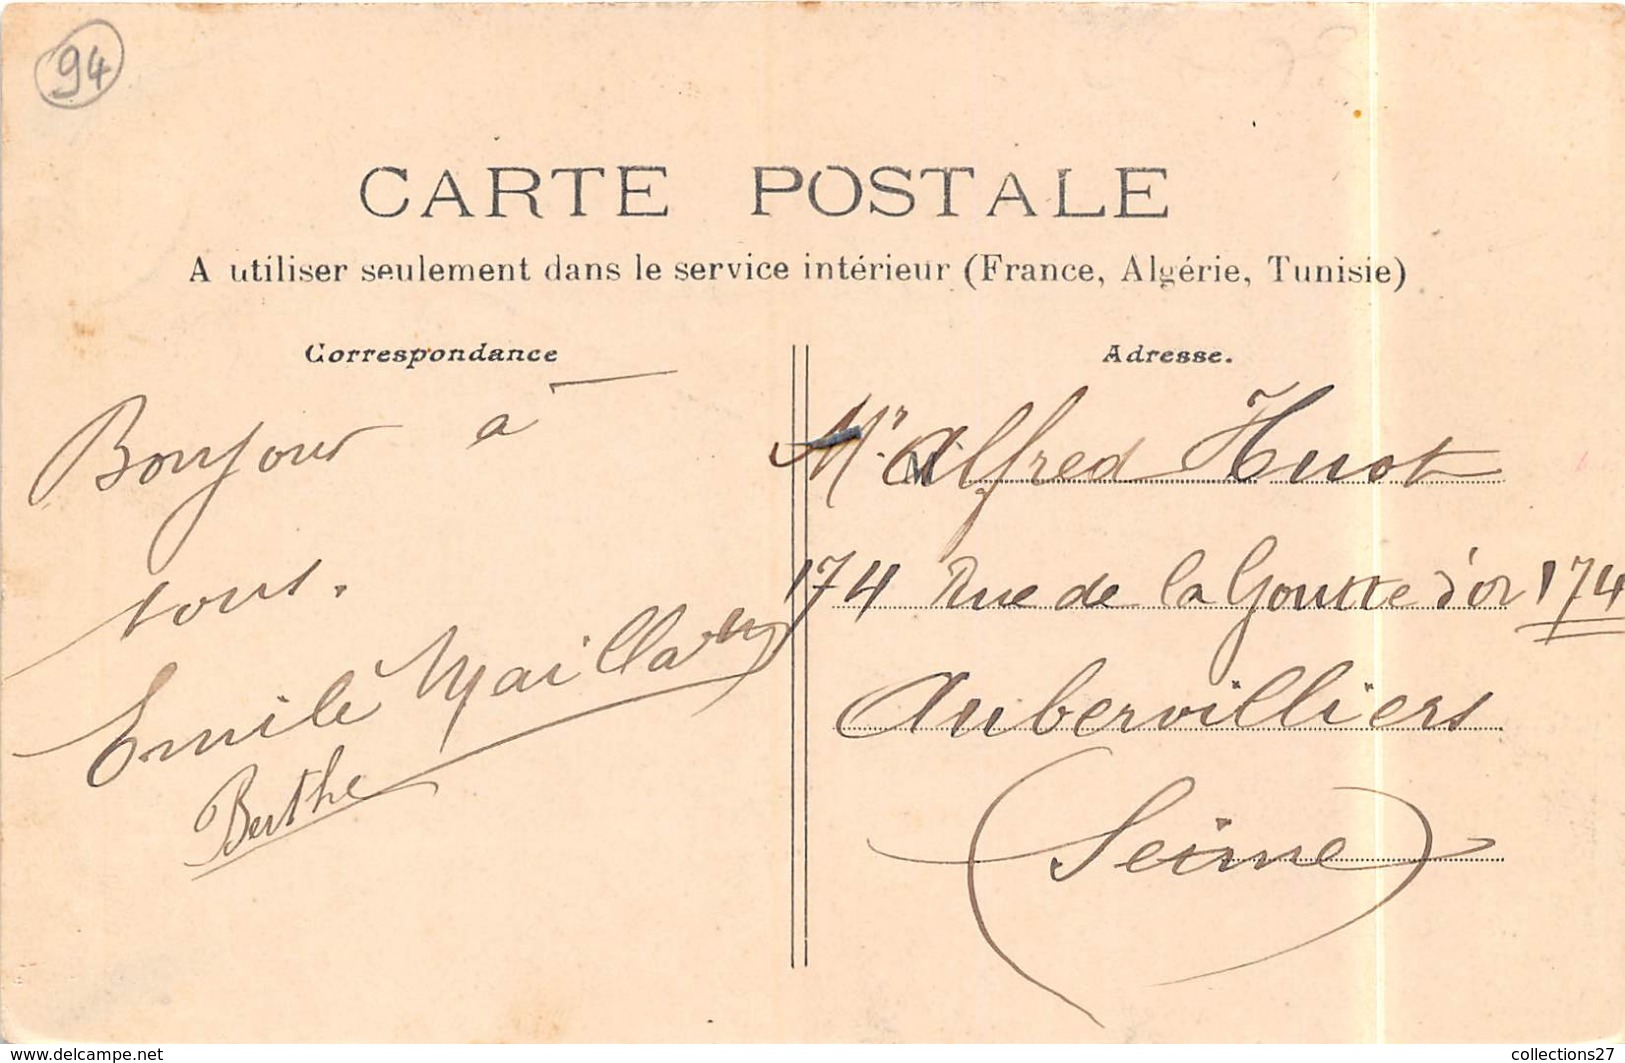 94
CARTE POSTALE
A utiliser seulement dans le service intérieur (France, Algérie, Tunisie)
Correspondance
Bonjour a
tous.
Emile Maillard
Berthe
Adresse.
Mr. Alfred Huot
174 Rue de la Goutte d'or 174
Aubervilliers
(Seine)
www.delcampe.net
collections27